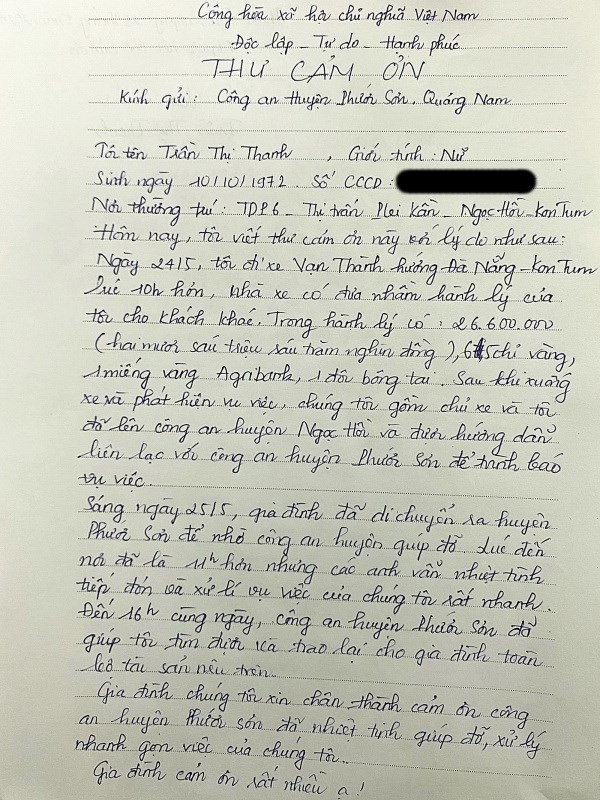 Cộng hòa xã hội chủ nghĩa Việt Nam
Độc lập - Tự do - Hạnh phúc
THƯ CẢM ƠN
Kính gửi: Công an Huyện Phước Sơn. Quảng Nam
Tôi tên Trần Thị Thanh , Giới tính: Nữ
Sinh ngày 10/10/1972. Số CCCD:
Nơi thường trú: TDP6 - Thị trấn Plei Kần - Ngọc Hồi - Kon Tum
Hôm nay, tôi viết thư cảm ơn này với lý do như sau:
Ngày 24/5, tôi đi xe Vạn Thành hướng Đà Nẵng - Kon Tum
lúc 10h hơn, nhà xe có đưa nhầm hành lý của
tôi cho khách khác. Trong hành lý có: 26.600.000
(hai mươi sáu triệu sáu trăm nghìn đồng), 5 chỉ vàng,
1 miếng vàng Agribank, 1 đôi bông tai. Sau khi xuống
xe và phát hiện vụ việc, chúng tôi gồm chủ xe và tôi
đã lên công an huyện Ngọc Hồi và được hướng dẫn
liên lạc với công an huyện Phước Sơn để trình báo
vụ việc.
Sáng ngày 25/5, gia đình đã di chuyển ra huyện
Phước Sơn để nhờ công an huyện giúp đỡ. Lúc đến
nơi đã là 11h hơn nhưng các anh vẫn nhiệt tình
tiếp đón và xử lí vụ việc của chúng tôi rất nhanh.
Đến 16h cùng ngày, công an huyện Phước Sơn đã
giúp tôi tìm được và trao lại cho gia đình toàn
bộ tài sản nêu trên.
Gia đình chúng tôi xin chân thành cảm ơn công
an huyện Phước Sơn đã nhiệt tình giúp đỡ, xử lý
nhanh gọn việc của chúng tôi.
Gia đình cảm ơn rất nhiều ạ!